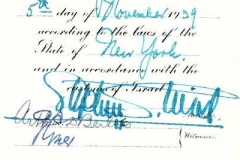 5th day of November 1939
according to the laws of the
State of New York
and in accordance with the
customs of Israel
Stephen S. Wise
Witnesses